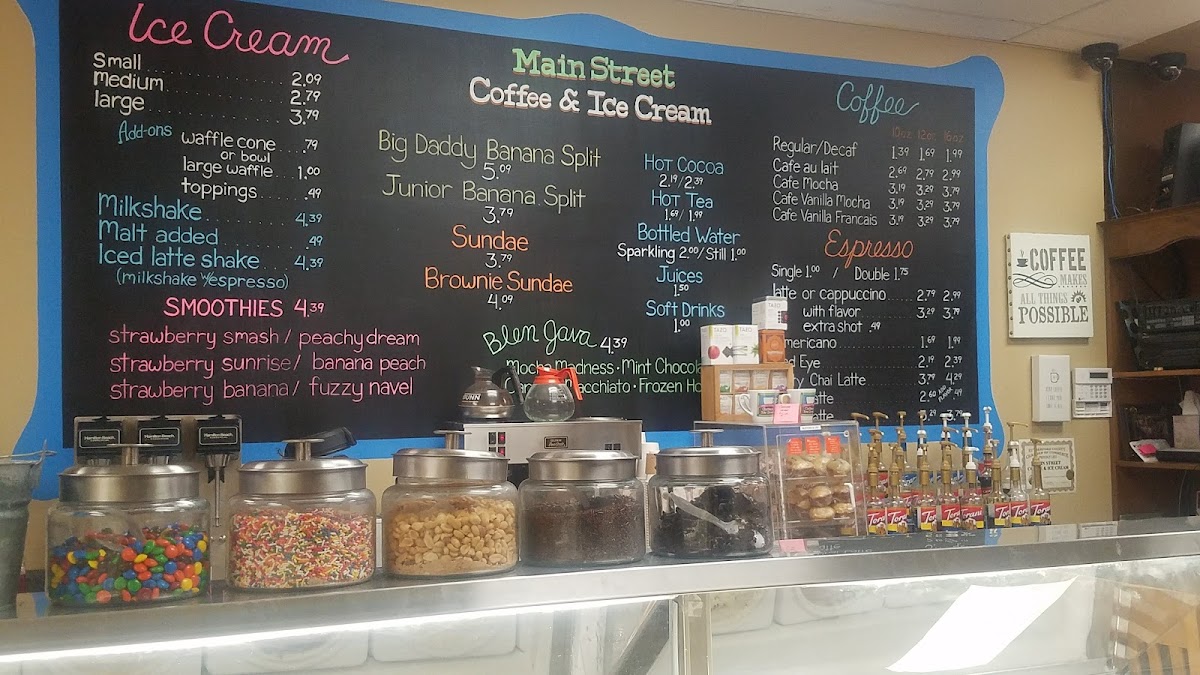 Ice Cream
Small 2.09
Medium 2.79
large 3.79
Add-ons
waffle cone .79
or bowl
large waffle 1.00
toppings .49
Milkshake 4.39
Malt added .49
Iced latte shake 4.39
(milkshake w/espresso)
SMOOTHIES 4.39
strawberry smash / peachy dream
strawberry sunrise / banana peach
strawberry banana / fuzzy navel
Main Street
Coffee & Ice Cream
Big Daddy Banana Split
5.09
Junior Banana Split
3.79
Sundae
3.79
Brownie Sundae
4.09
Hot Cocoa
2.19 / 2.39
Hot Tea
1.69 / 1.99
Bottled Water
Sparkling 2.00 / Still 1.00
Juices
1.50
Soft Drinks
1.00
Blen Java 4.39
Mocha Madness • Mint Chocola
acchiato • Frozen Ho
Coffee
10oz 12oz 16oz
Regular/Decaf 1.39 1.69 1.99
Cafe au lait 2.69 2.79 2.99
Cafe Mocha 3.19 3.29 3.79
Cafe Vanilla Mocha 3.19 3.29 3.79
Cafe Vanilla Francais 3.19 3.29 3.79
Espresso
Single 1.00 / Double 1.75
latte or cappuccino 2.79 2.99
with flavor 3.29 3.79
extra shot .49
mericano 1.69 1.99
Eye 2.19 2.39
Chai Latte 3.79 4.29
tte 2.60
atte 3.29 3.79
COFFEE
MAKES
ALL THINGS
POSSIBLE
TAZO
BUNN
Hamilton Beach
Hamilton Beach
Hamilton Beach
Torani